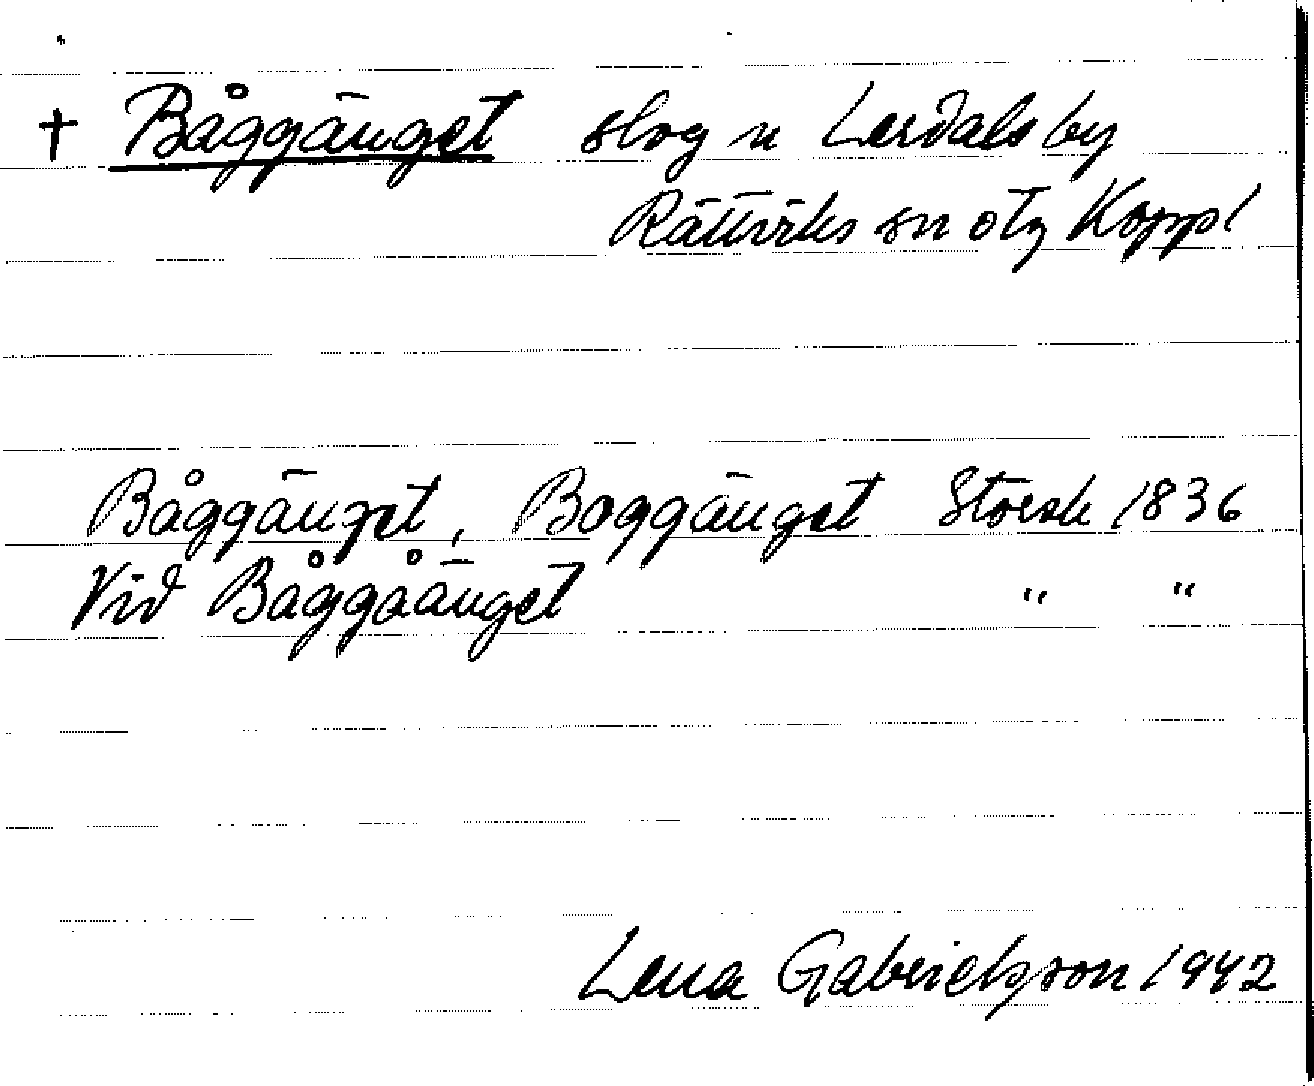 † Båggänget slog u Lerdals by
Rättviks sn otg Koppl
Båggänget, Boggänget Storsk 1836
Vid Båggåänget " "
Lena Gabrielsson 1942